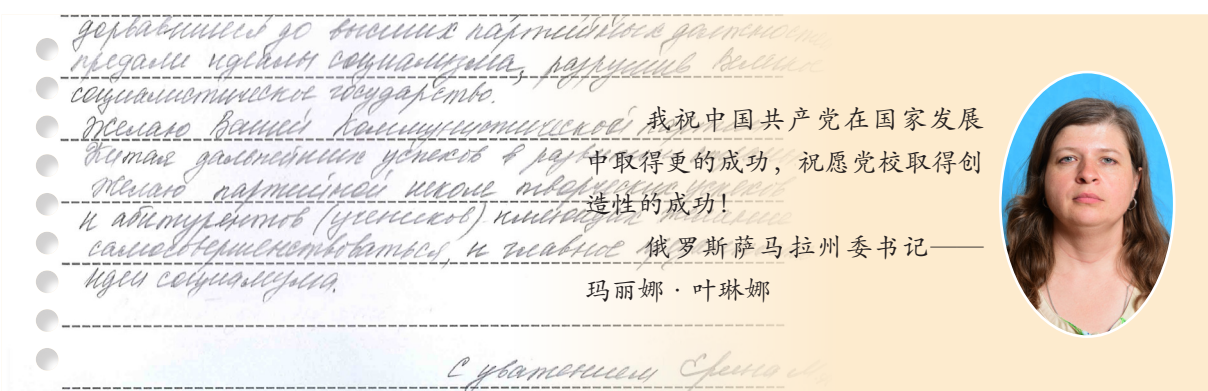 дорвавшиеся до высших партийных должностей
предали идеалы социализма, разрушив Великое
социалистическое государство.
Желаю Вашей Коммунистической
Китая дальнейших успехов в
Желаю партийной школе творческих успехов
и абитурентов (учеников) имеющих желание
самосовершенствоваться, и главное
идеи социализма.
С уважением Ерина М
我祝中国共产党在国家发展
中取得更的成功，祝愿党校取得创
造性的成功！
俄罗斯萨马拉州委书记——
玛丽娜·叶琳娜